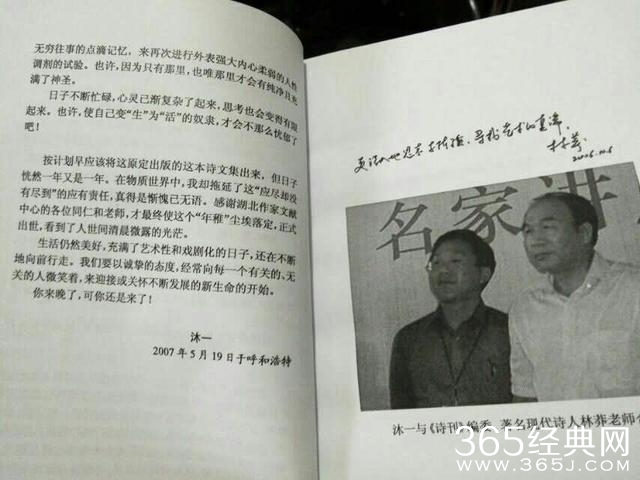 无穷往事的点滴记忆，来再次进行外表强大内心柔弱的人性
调剂的试验。也许，因为只有那里，也唯那里才会有纯净且充
满了神圣。
日子不断忙碌，心灵已渐复杂了起来，思考也会变得有限
起来。也许，使自己变“生”为“活”的奴隶，才会不那么忧郁了
吧！
按计划早应该将这原定出版的这本诗文集出来，但日子
恍然一年又是一年。在物质世界中，我却拖延了这“应尽却没
有尽到”的应有责任，真得是惭愧已无语。感谢湖北作家文献
中心的各位同仁和老师，才最终使这个“年稚”尘埃落定，正式
出世，看到了人世间清晨微露的光茫。
生活仍然美好，充满了艺术性和戏剧化的日子，还在不断
地向前行走。我们要以诚挚的态度，经常向每一个有关的、无
关的人微笑着，来迎接或关怀不断发展的新生命的开始。
你来晚了，可你还是来了！
沐一
2007年5月19日于呼和浩特
艺术的真谛
林莽
2006.10.6
名家讲
沐一与《诗刊》编委、著名现代诗人林莽老师
365经典网
WWW.365J.COM